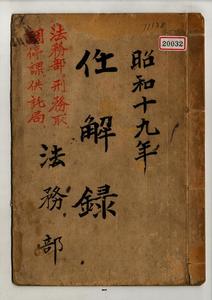 11138
20032
昭和十九年
任解録
法務部
法務部刑務取
調停課供託局